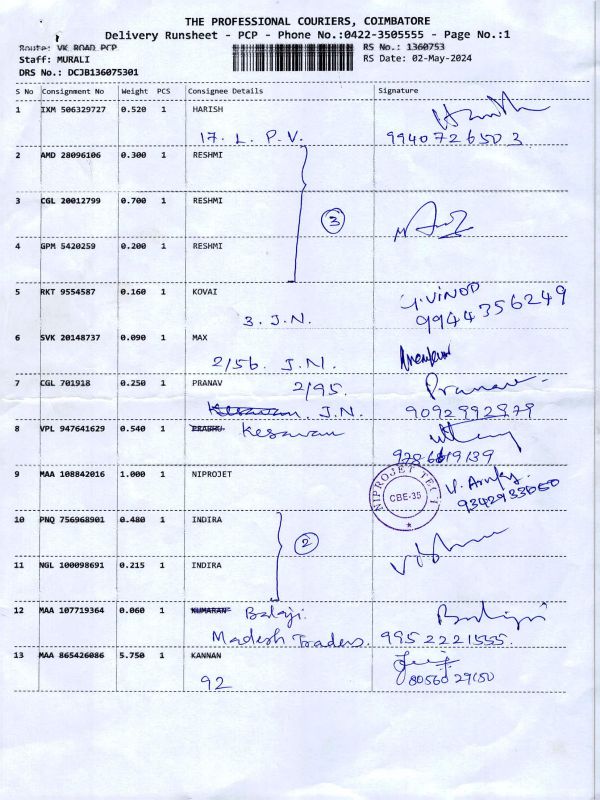 THE PROFESSIONAL COURIERS, COIMBATORE
Delivery Runsheet - PCP - Phone No.:0422-3505555 - Page No.:1
Route: VK ROAD PCP
RS No.: 1360753
Staff: MURALI
RS Date: 02-May-2024
DRS No.: DCJB136075301
S No Consignment No Weight PCS Consignee Details Signature
1 IXM 506329727 0.520 1 HARISH
17. L. P. V. 9940726503
2 AMD 28096106 0.300 1 RESHMI
3 CGL 20012799 0.700 1 RESHMI
3
4 GPM 5420259 0.200 1 RESHMI
5 RKT 9554587 0.160 1 KOVAI VINOD
3. J.N. 9944356249
6 SVK 20148737 0.090 1 MAX
2/56. J.N.
7 CGL 701918 0.250 1 PRANAV 2/95. Pranav
Kesavan J.N. 9092992979
8 VPL 947641629 0.540 1 PRABHU Kesavan
9 MAA 108842016 1.000 1 NIPROJET
NIPROJET TECH CBE-35
10 PNQ 756968901 0.480 1 INDIRA
2
11 NGL 100098691 0.215 1 INDIRA
12 MAA 107719364 0.060 1 KUMARAN Balaji Balaji
Madesh Traders. 9952221555.
13 MAA 865426086 5.750 1 KANNAN
92 8056029150